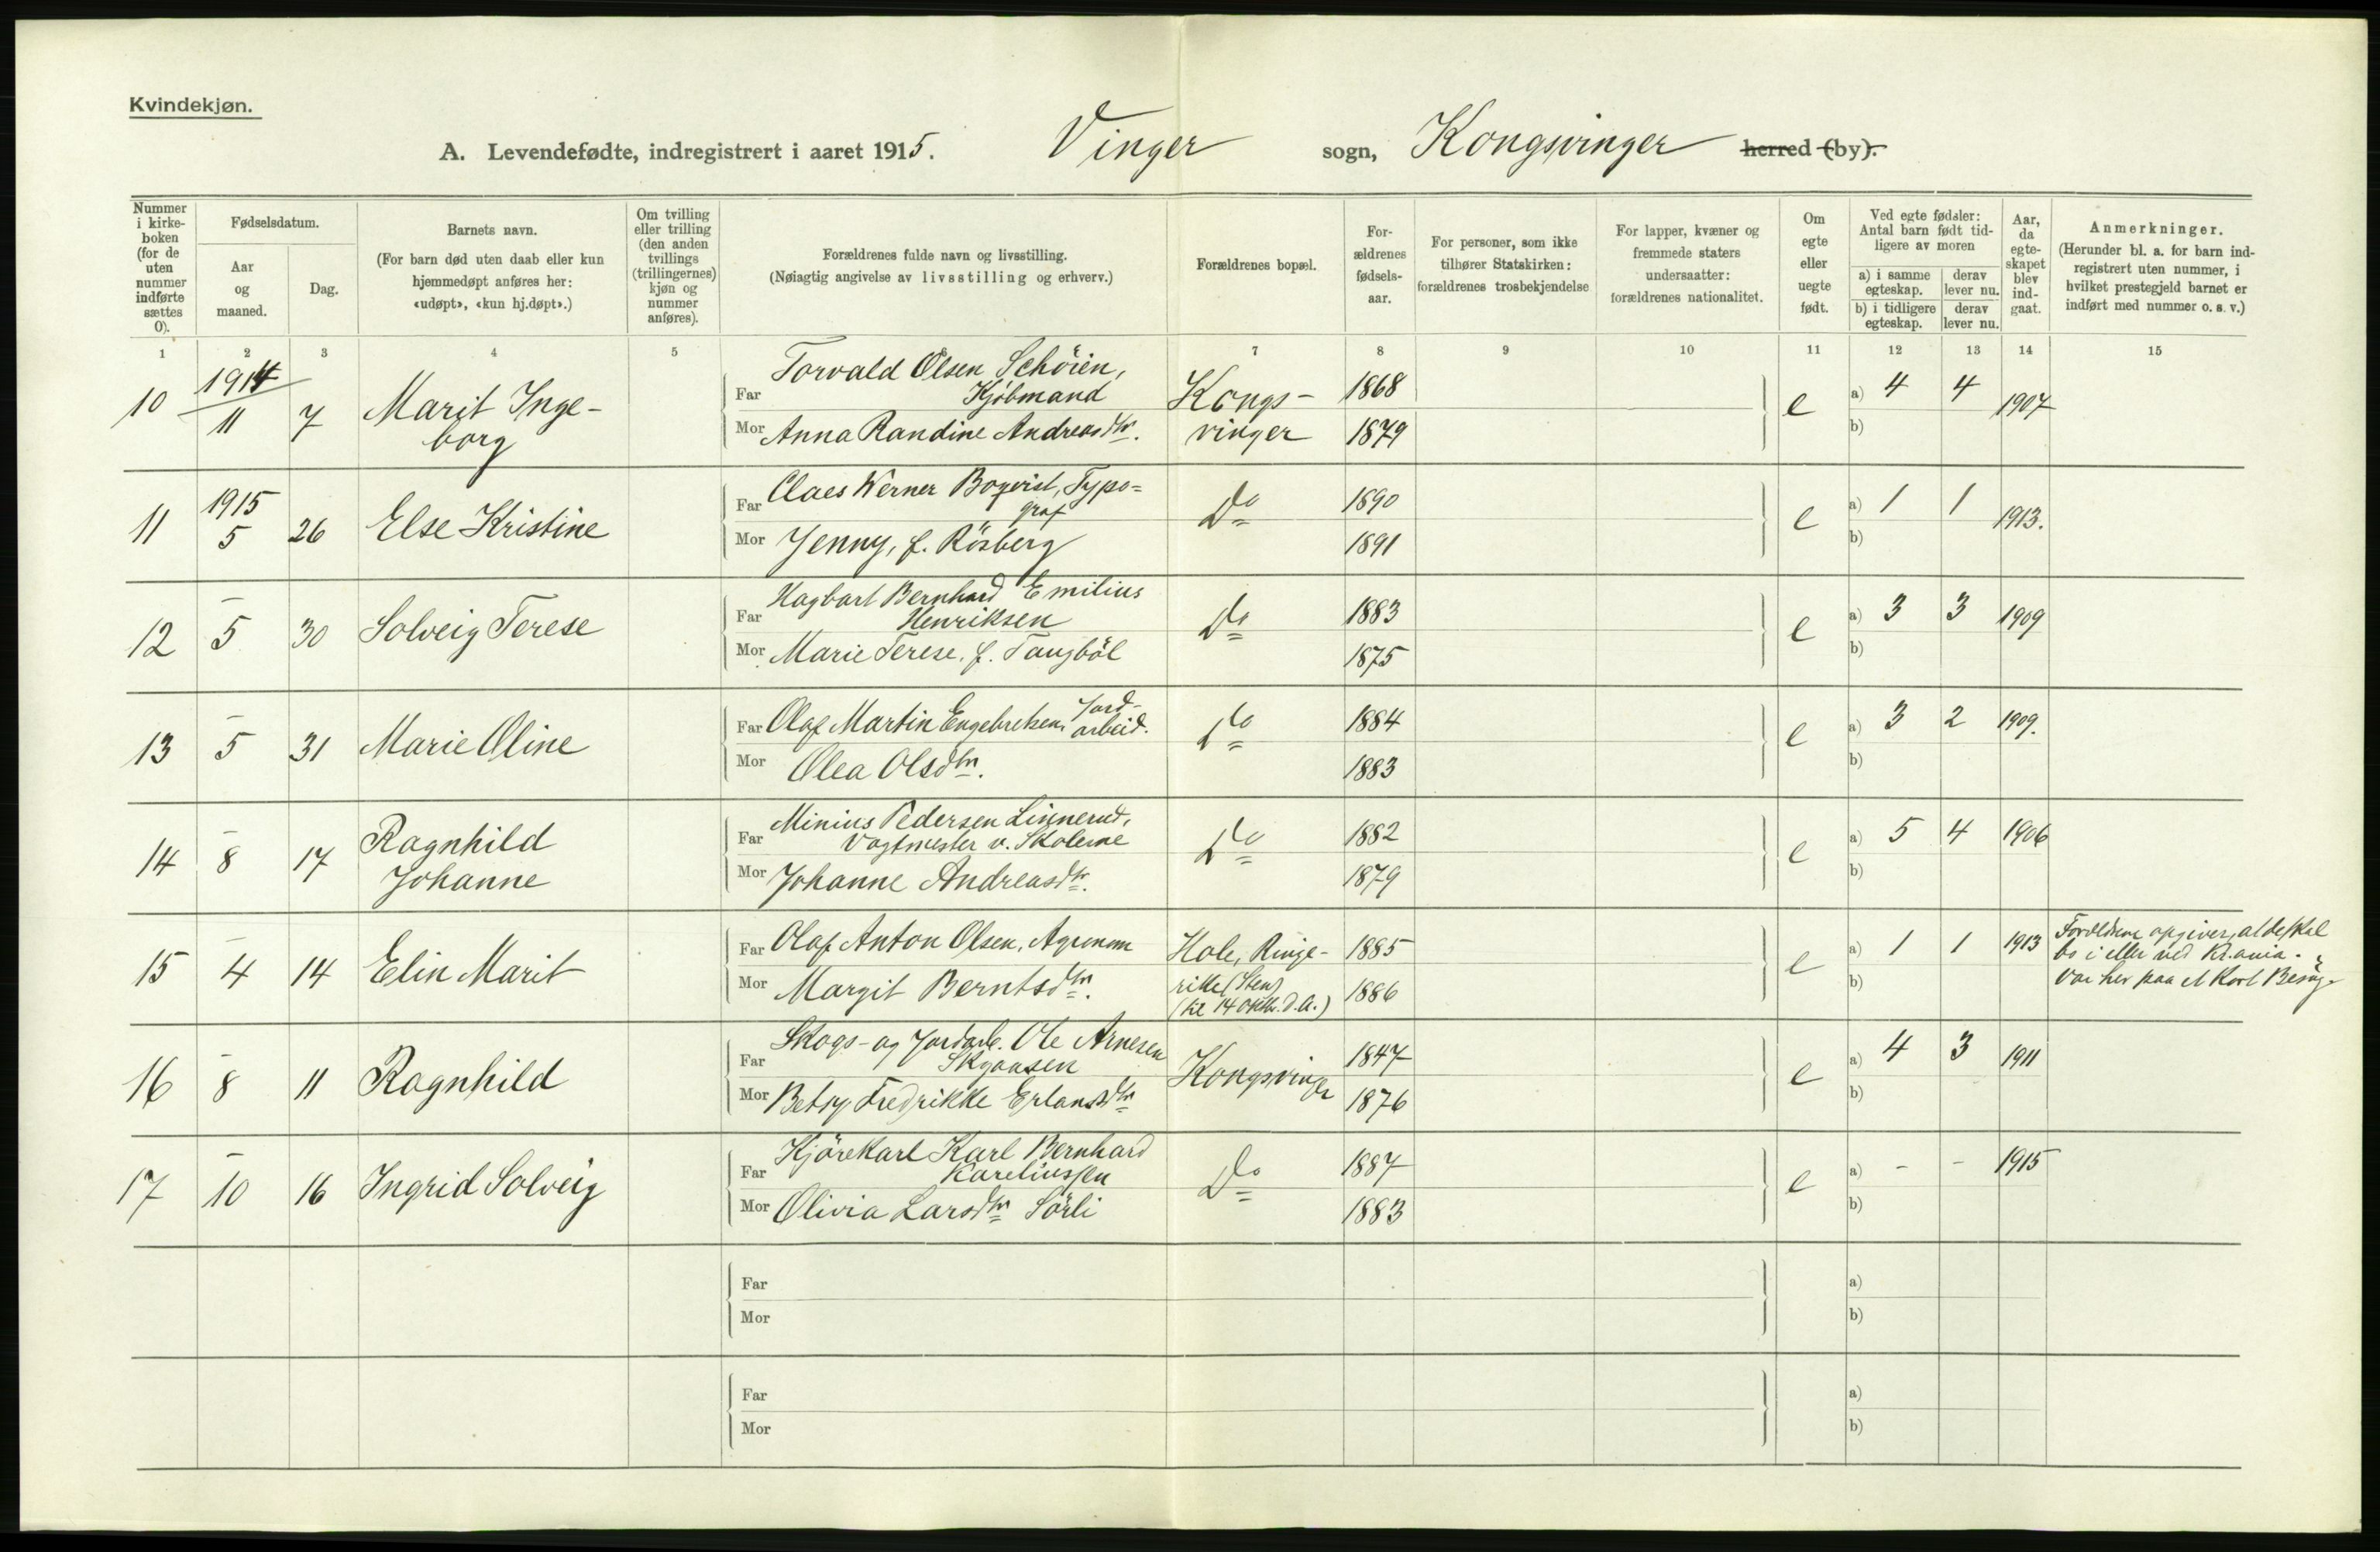 Kvindekjøn.
A. Levendefødte, indregistrert i aaret 1915. Vinger sogn, Kongsvinger herred (by).
Nummer i kirke-boken (for de uten nummer indførte sættes 0).
Fødselsdatum.
Aar og maaned.
Dag.
Barnets navn.
(For barn død uten daab eller kun hjemmedøpt anføres her: «udøpt», «kun hj.døpt».)
Om tvilling eller trilling (den anden tvillings (trillingernes) kjøn og nummer anføres).
Forældrenes fulde navn og livsstilling.
(Nøiagtig angivelse av livsstilling og erhverv.)
Forældrenes bopæl.
For-ældrenes fødsels-aar.
For personer, som ikke tilhører Statskirken: forældrenes trosbekjendelse
For lapper, kvæner og fremmede staters undersaatter: forældrenes nationalitet.
Om egte eller uegte født.
Ved egte fødsler: Antal barn født tid-ligere av moren
a) i samme egteskap.
derav lever nu.
b) i tidligere egteskap.
derav lever nu.
Aar, da egte-skapet blev ind-gaat.
Anmerkninger.
(Herunder bl. a. for barn ind-registrert uten nummer, i hvilket prestegjeld barnet er indført med nummer o. s. v.)
1 2 3 4 5 6 7 8 9 10 11 12 13 14 15
10 1914 11 7 Marit Inge-
borg
Far Torvald Olsen Schöien,
Kjöbmand
Kongs- 1868
Mor Anna Randine Andreasdtr.
vinger 1879
e a) 4 4 1907
b)
11 1915 5 26 Else Kristine
Far Claes Werner Boqvist, Typo=
graf
Do 1890
Mor Jenny, f. Rösberg 1891
e a) 1 1 1913.
b)
12 – 5 30 Solveig Terese
Far Hagbart Bernhard Emilius
Henriksen
Do 1883
Mor Marie Terese. f. Taugböl 1875
e a) 3 3 1909
b)
13 – 5 31 Marie Oline
Far Olaf Martin Engebretsen, Jord-
arbeid.
Do 1884
Mor Olea Olsdtr. 1883
e a) 3 2 1909.
b)
14 – 8 17 Ragnhild
Johanne
Far Minius Pedersen Linnerud,
Vagtmester v. Skolerne
Do 1882
Mor Johanne Andreasdtr. 1879
e a) 5 4 1906
b)
15 – 4 14 Elin Marit
Far Olaf Anton Olsen, Agronom
Hole, Ringe- 1885
Mor Margit Berntsdtr.
rike (Sten) 1886
(til 14 oktbr. d.a.)
e a) 1 1 1913
b)
Forældrene opgiver, at de skal
bo i eller ved Kr.ania.
Var her paa et kort Besög
16 – 8 11 Ragnhild
Far Skogs- og Jordarb. Ole Arnesen
Kongsvinger 1847
Mor Betsy Fredrikke Erlandsdtr 1876
e a) 4 3 1911
b)
17 – 10 16 Ingrid Solveig
Far Kjörekarl Karl Bernhard
Kareliussen
Do 1887
Mor Olivia Larsdtr Sörli 1883
e a) - - 1915
b)
Far a)
Mor b)
Far a)
Mor b)